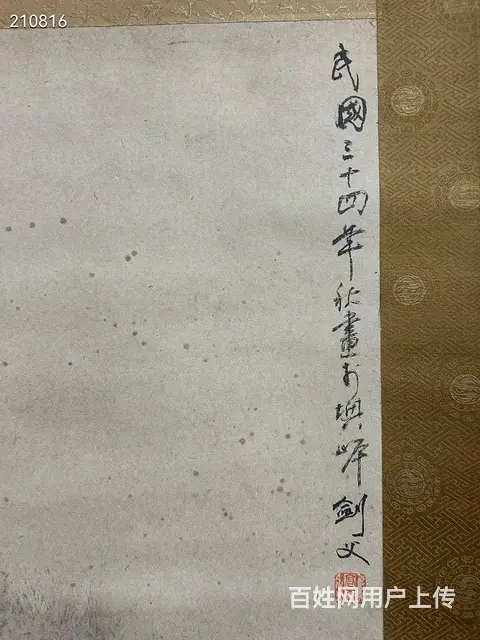 210816
民國三十四年秋畫於劍父
百姓网用户上传